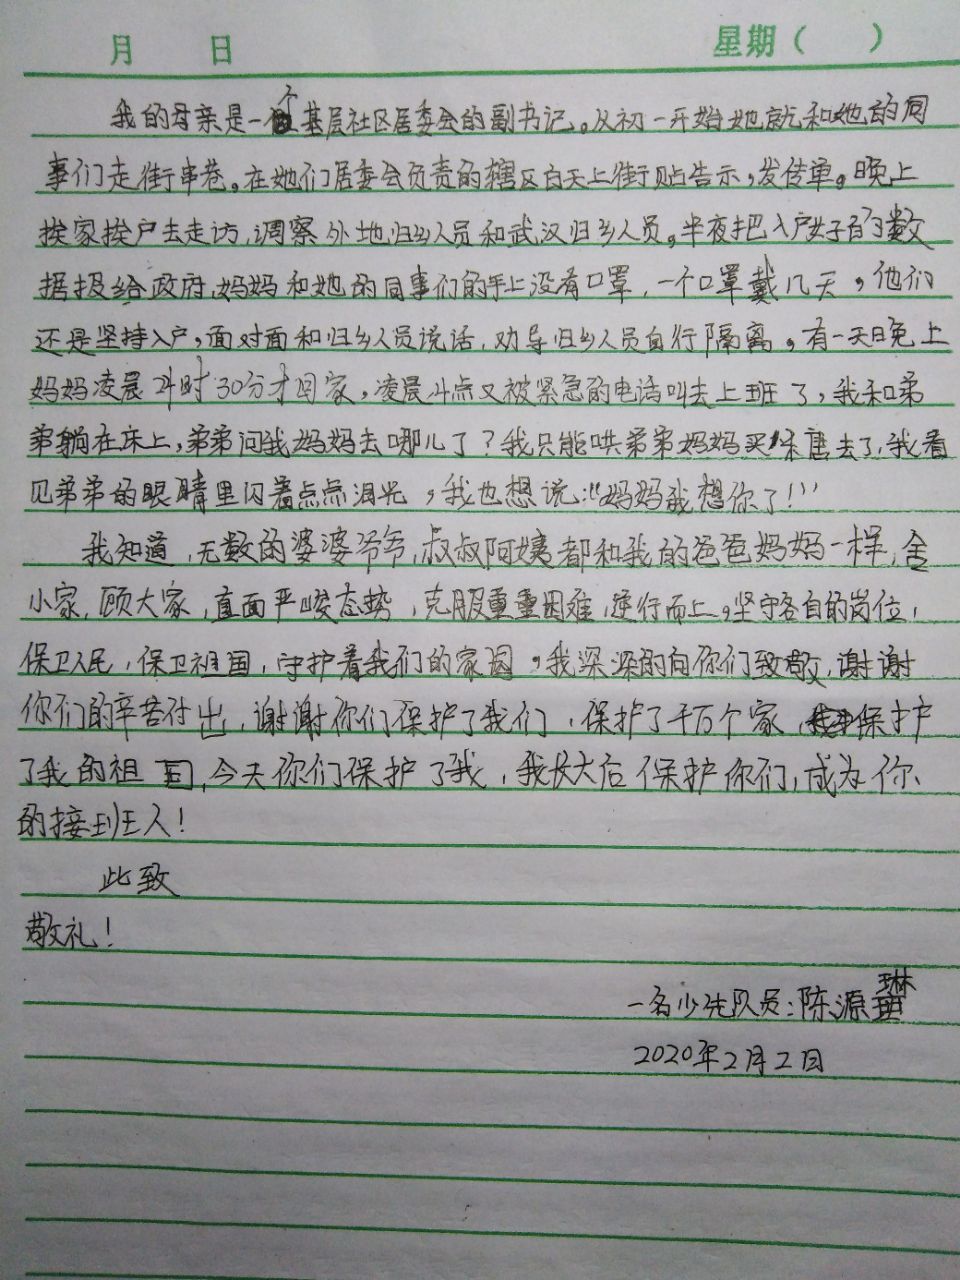 月 日 星期（ ）
我的母亲是一个基层社区居委会的副书记。从初一开始她就和她的同
事们走街串巷。在她们居委会负责的辖区白天上街贴告示，发传单。晚上
挨家挨户去走访，调察外地归乡人员和武汉归乡人员。半夜把入户好的数
据报给政府，妈妈和她的同事们的手上没有口罩，一个口罩戴几天，他们
还是坚持入户，面对面和归乡人员说话，劝导归乡人员自行隔离，有一天晚上
妈妈凌晨2时30分才回家，凌晨4点又被紧急的电话叫去上班了，我和弟
弟躺在床上，弟弟问我妈妈去哪儿了？我只能哄弟弟妈妈买糖去了，我看
见弟弟的眼睛里闪着点点泪光，我也想说：“妈妈我想你了！”
我知道，无数的婆婆爷爷，叔叔阿姨都和我的爸爸妈妈一样，舍
小家，顾大家，直面严峻态势，克服重重困难，逆行而上。坚守各自的岗位，
保卫人民，保卫祖国，守护着我们的家园，我深深的向你们致敬，谢谢
你们的辛苦付出，谢谢你们保护了我们，保护了千万个家，保护
了我的祖国，今天你们保护了我，我长大后保护你们，成为你
的接班人！
此致
敬礼！
一名少先队员：陈源琳
2020年2月2日